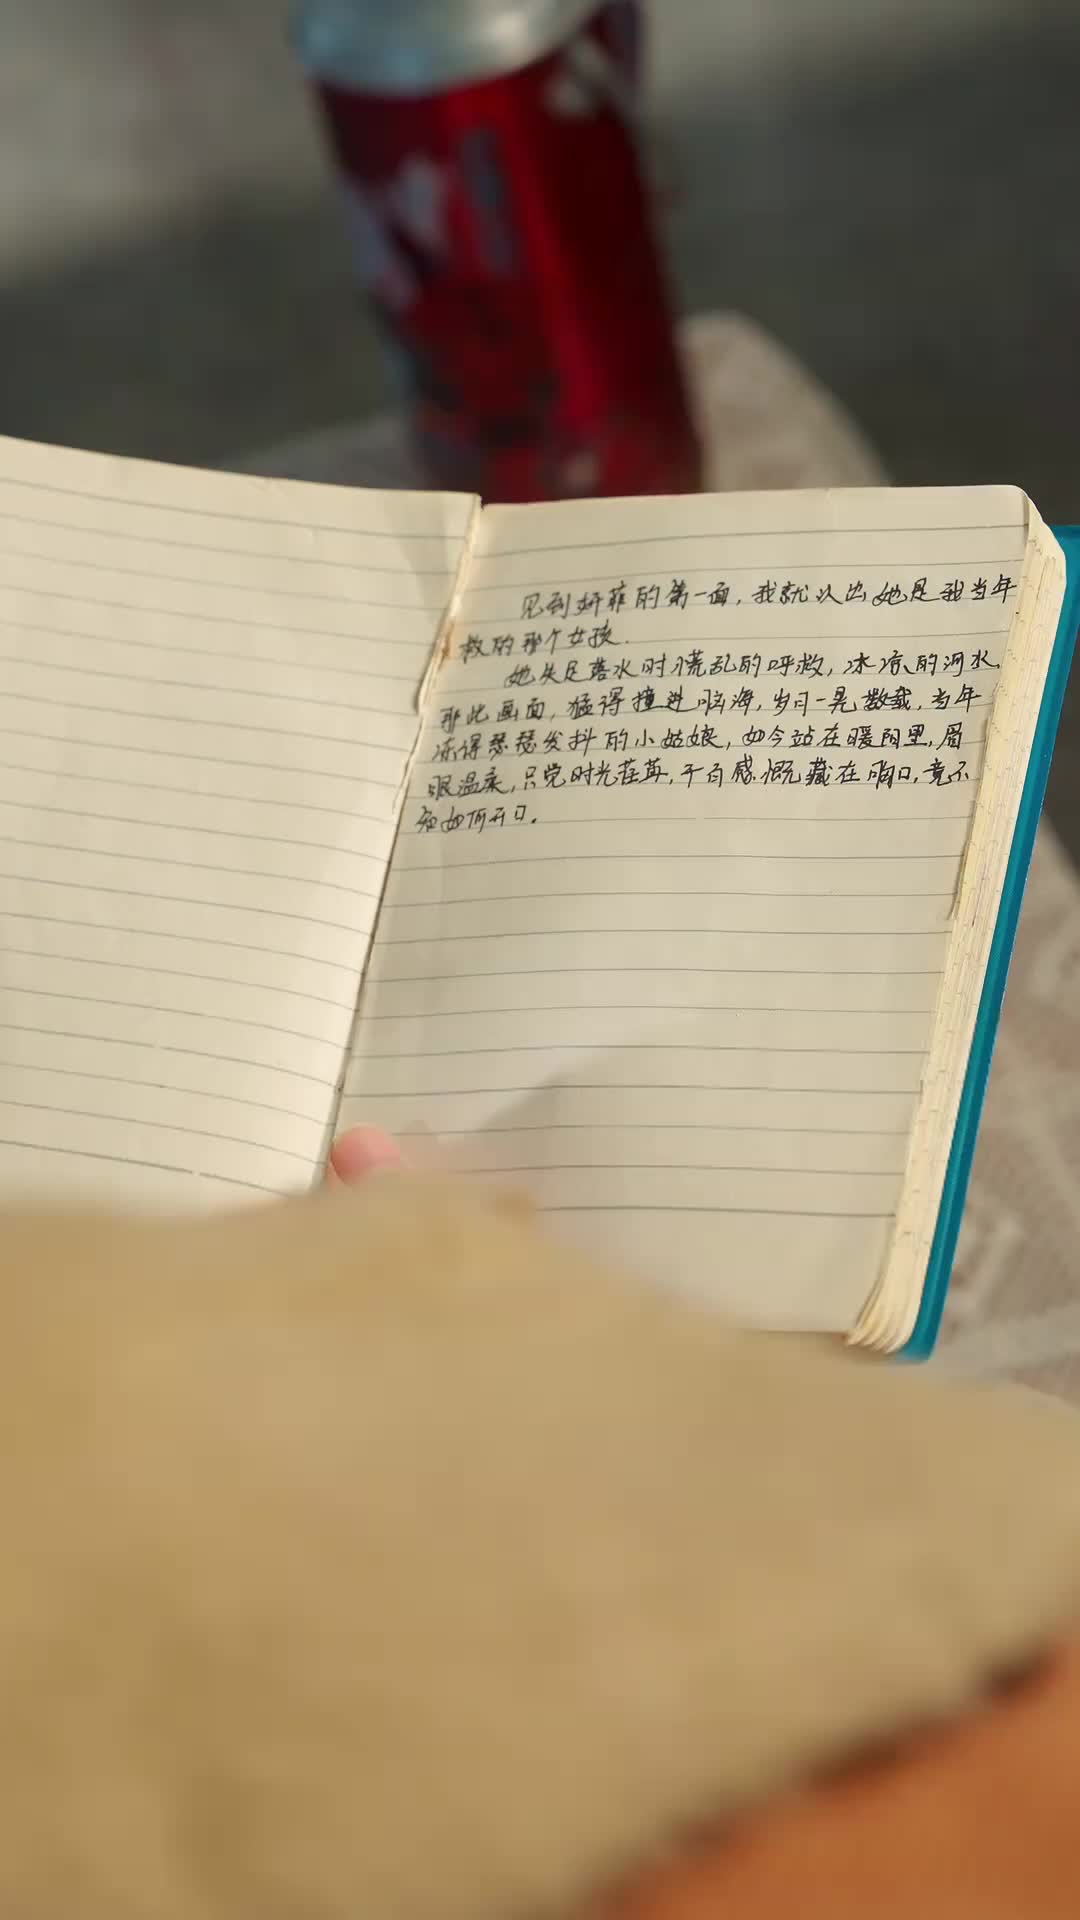 见到妍菲的第一面，我就认出她是我当年
救的那个女孩.
她失足落水时慌乱的呼救，冰凉的河水，
那些画面，猛得撞进脑海，岁月一晃数载，当年
冻得瑟瑟发抖的小姑娘，如今站在暖阳里，眉
眼温柔，只觉时光荏苒，千百感慨藏在胸口，竟不
知如何开口。